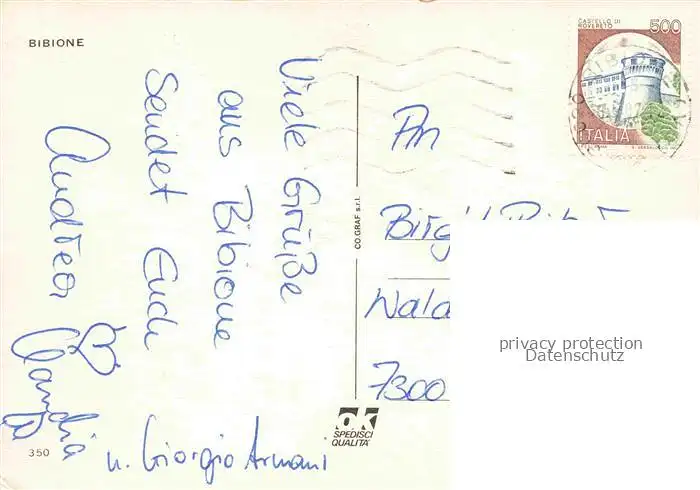 BIBIONE
Viele Grüße
aus Bibione
sendet Euch
Claudia
u. Giorgio Armani
350
CO.GRAF s.r.l.
OK
SPEDISCI
QUALITA'
CASTELLO DI
ROVERETO
500
ITALIA
An
7300
privacy protection
Datenschutz